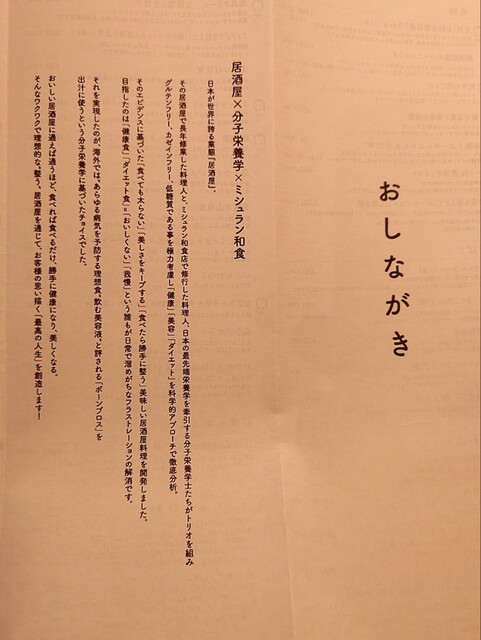 おしながき
居酒屋×分子栄養学×ミシュラン和食
日本が世界に誇る業態「居酒屋」。
その居酒屋で長年修業した料理人と、ミシュラン和食店で修行した料理人、日本の最先端栄養学を牽引する分子栄養学士たちがトリオを組み
グルテンフリー、カゼインフリー、低糖質である事を極力考慮し「健康」「美容」「ダイエット」を科学的アプローチで徹底分析。
そのエビデンスに基づいた「食べても太らない」「美しさをキープする」「食べたら勝手に整う」美味しい居酒屋料理を開発しました。
目指したのは「健康食」「ダイエット食」=「おいしくない」「我慢」という誰もが日常で溜めがちなフラストレーションの解消です。
それを実現したのが、海外では、あらゆる病気を予防する理想食、飲む美容液、と評される「ボーンブロス」を
出汁に使うという分子栄養学に基づいたチョイスでした。
おいしい居酒屋に通えば通うほど、食べれば食べるだけ、勝手に健康になり、美しくなる。
そんなワクワクで理想的な、整う、居酒屋を通じて、お客様の思い描く「最高の人生」を創造します!